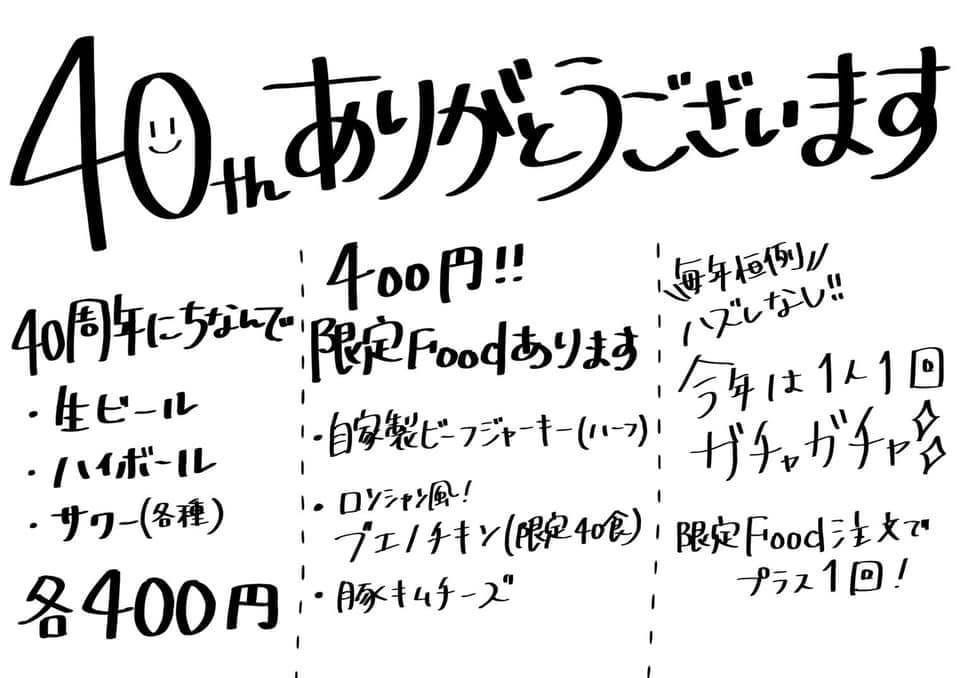 40thありがとうございます
40周年にちなんで
・生ビール
・ハイボール
・サワー(各種)
各400円
400円!!
限定Foodあります
・自家製ビーフジャーキー(ハーフ)
・ロンシャン風!
ブエノチキン(限定40食)
・豚キムチーズ
\\毎年恒例//
ハズレなし!!
今年は1人1回
ガチャガチャ
限定Food注文で
プラス1回!